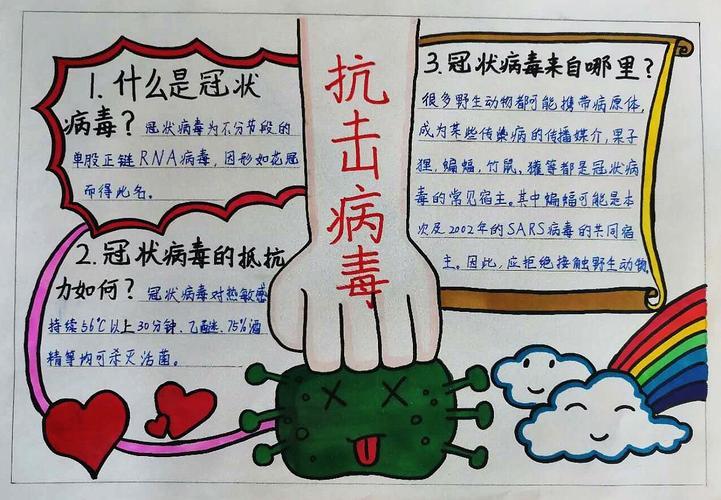 抗击病毒
1.什么是冠状
病毒？冠状病毒为不分节段的
单股正链RNA病毒，因形如花冠
而得此名。
2.冠状病毒的抵抗
力如何？冠状病毒对热敏感
持续56℃以上30分钟、乙醚、75%酒
精等均可杀灭活菌。
3.冠状病毒来自哪里？
很多野生动物都可能携带病原体，
成为某些传染病的传播媒介，果子
狸，蝙蝠，竹鼠，獾等都是冠状病
毒的常见宿主。其中蝙蝠可能是本
次及2002年的SARS病毒的共同宿
主。因此，应拒绝接触野生动物。